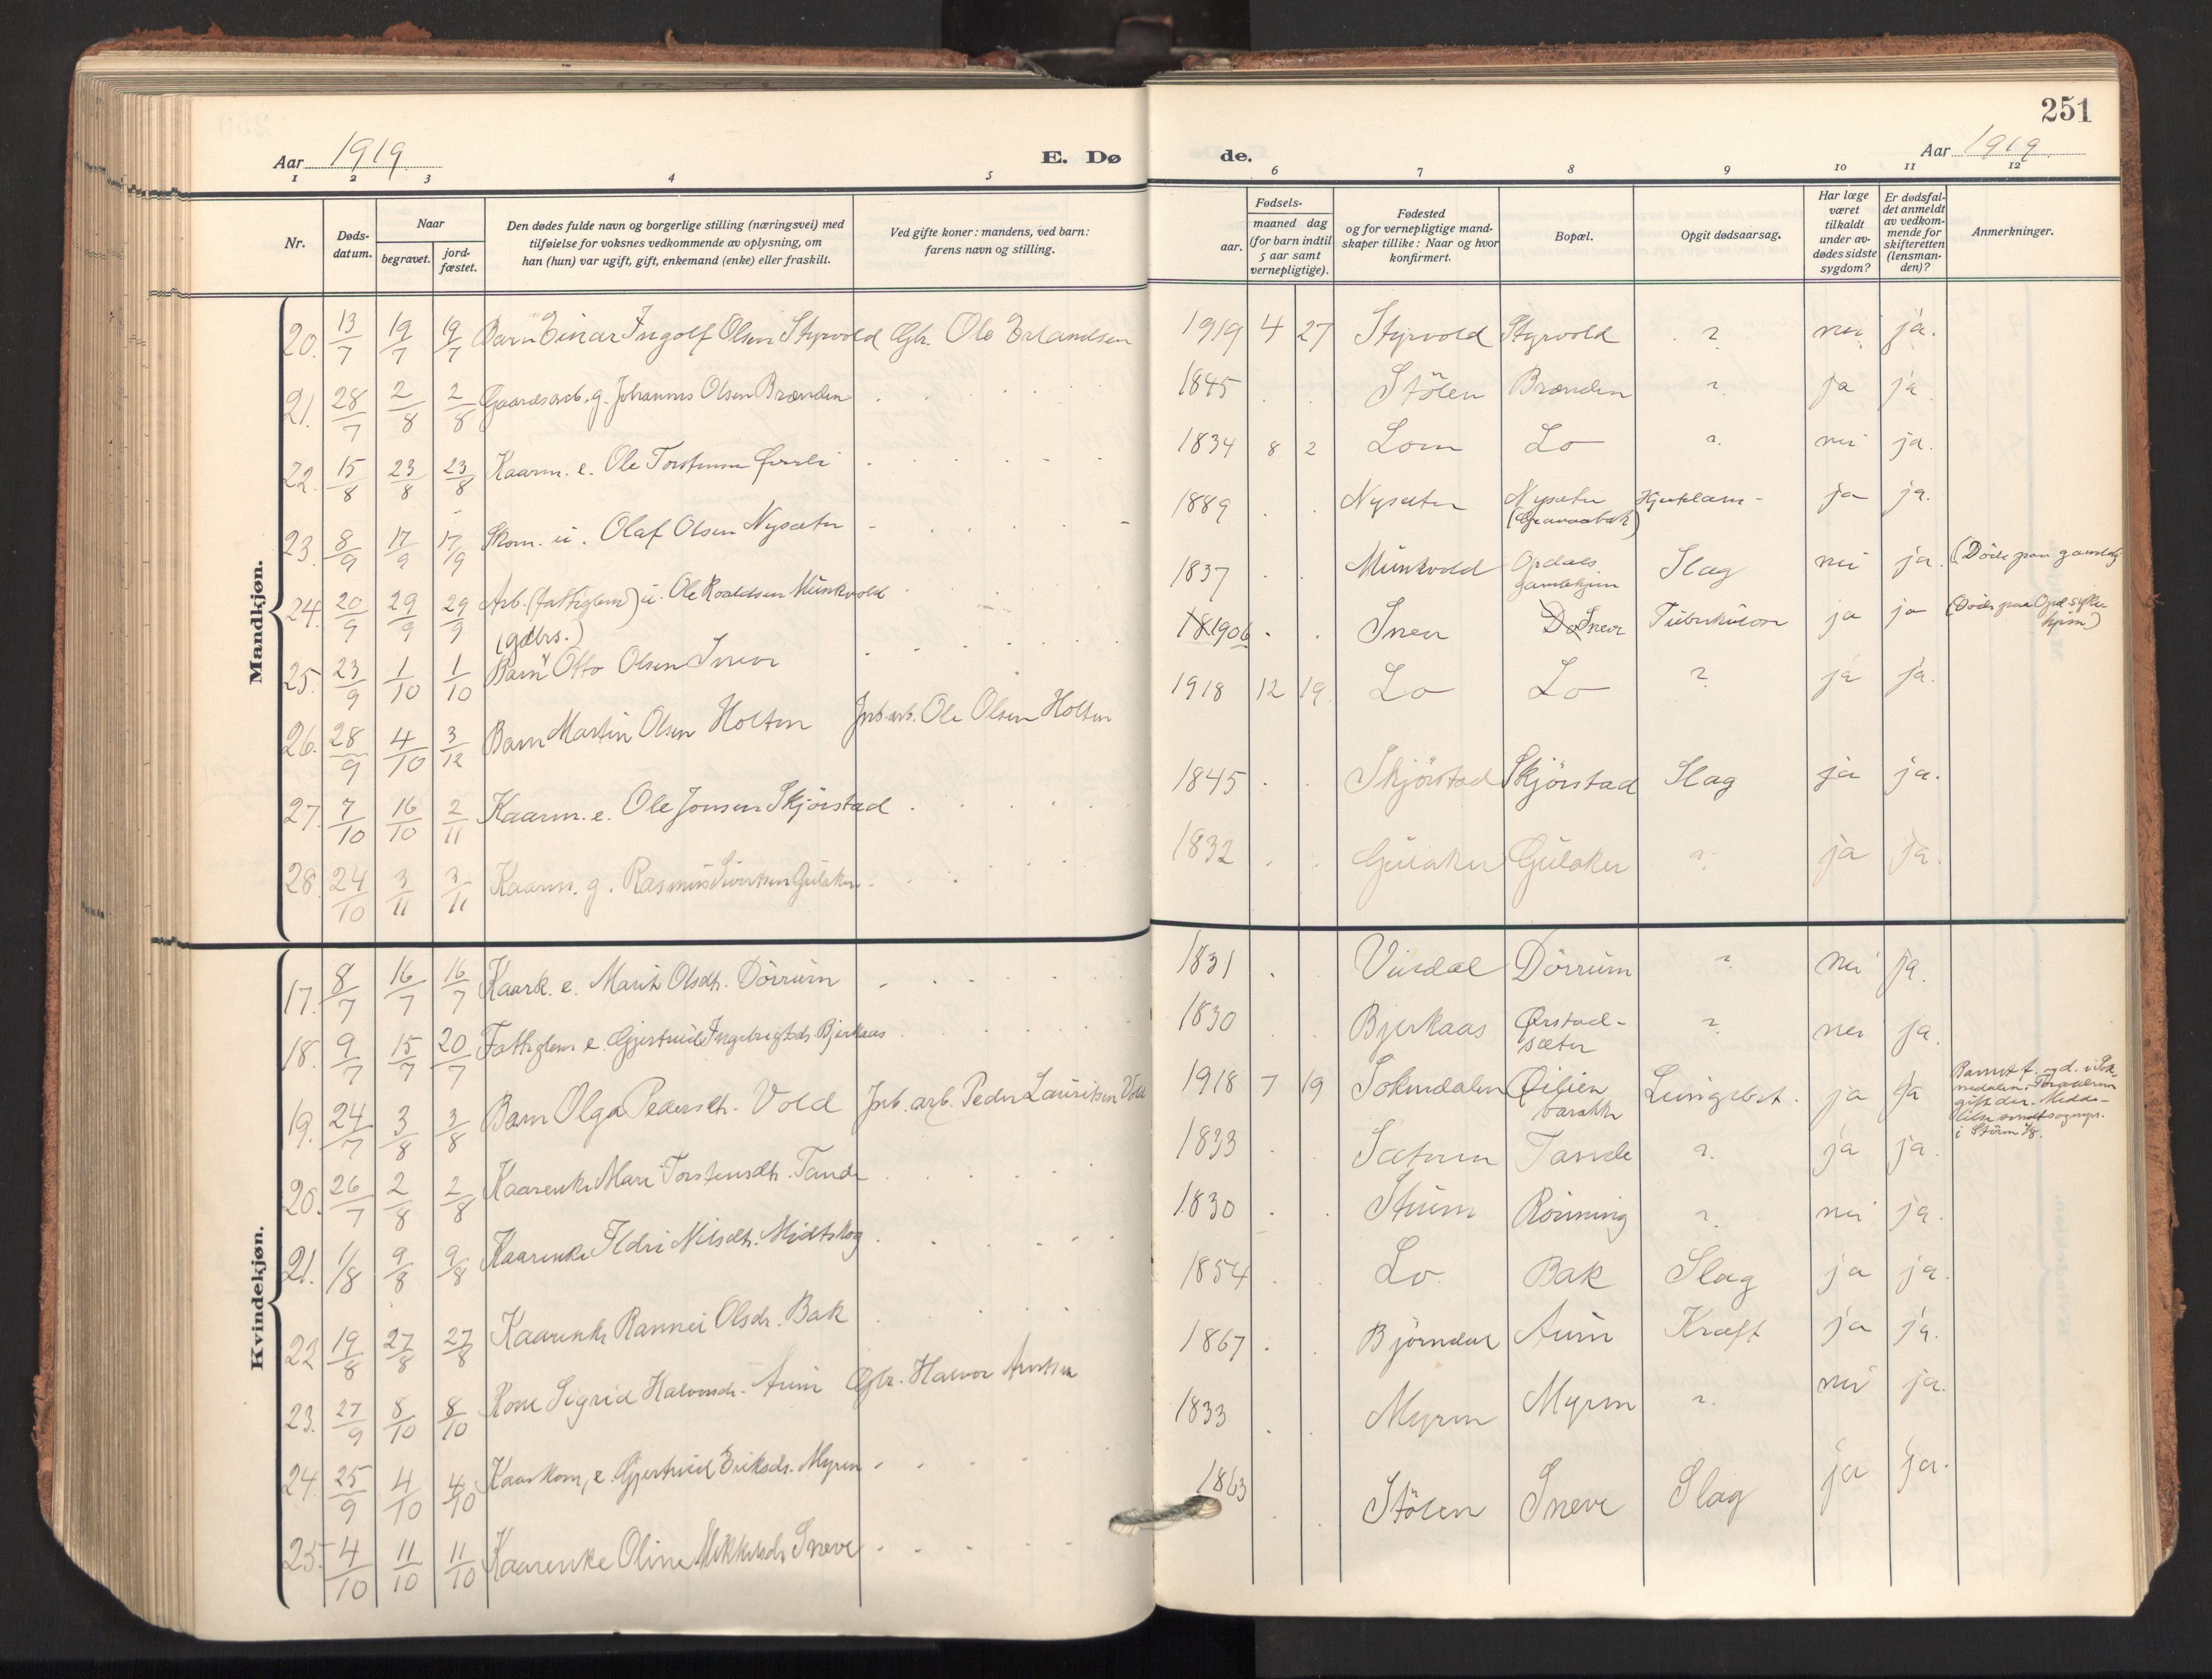 251
Aar 1919
E. Dø
de.
Aar 1919
1 2 3 4 5 6 7 8 9 10 11 12
Nr.
Døds-
datum.
Naar
begravet.
jord-
fæstet.
Den dødes fulde navn og borgerlige stilling (næringsvei) med
tilføielse for voksnes vedkommende av oplysning, om
han (hun) var ugift, gift, enkemand (enke) eller fraskilt.
Ved gifte koner: mandens, ved barn:
farens navn og stilling.
Fødsels-
aar.
maaned dag
(for barn indtil
5 aar samt
vernepligtige).
Fødested
og for vernepligtige mand-
skaper tillike: Naar og hvor
konfirmert.
Bopæl.
Opgit dødsaarsag.
Har læge
været
tilkaldt
under av-
dødes sidste
sygdom?
Er dødsfal-
det anmeldt
av vedkom-
mende for
skifteretten
(lensman-
den)?
Anmerkninger.
Mandkjøn.
20. 13/7 19/7 19/7 Barn Einar Ingolf Olsen Styrvold Gbr. Ole Erlandsen 1919 4 27 Styrvold Styrvold ? nei ja.
21. 28/7 2/8 2/8 Gaardsarb. g. Johannes Olsen Brænden 1845 Stölen Brænden ? ja ja
22. 15/8 23/8 23/8 Kaarm. e. Ole Torstensen 1834 8 2 Lom Lo ? nei ja.
23. 8/9 17/9 17/9 Skom. u. Olaf Olsen Nysæter 1889 Nysæter Nysæter ja ja.
24. 20/9 29/9 29/9 Arb. (fattiglem) u. Ole Roaldsen Munkvold 1837 Munkvold Opdals gamlehjem Slag nei ja. (Döde paa gamlehj
(gdbrs.)
25. 23/9 1/10 1/10 Barn Otto Olsen Sneve 1906 Sneve Do Sneve Tuberkulose ja ja (Döde paa Opd. syke
hjem)
26. 28/9 4/10 3/12 Barn Martin Olsen Holten Jnb. arb. Ole Olsen Holten 1918 12 19 Lo Lo ? ja ja.
27. 7/10 16/10 2/11 Kaarm. e. Ole Jonsen Skjörstad 1845 Skjörstad Skjörstad Slag ja ja.
28. 24/10 3/11 3/11 Kaarm. g. Rasmus Sivertsen Gulaker 1832 Gulaker Gulaker ? ja ja.
Kvindekjøn.
17. 8/7 16/7 16/7 Kaark. e. Marit Olsdtr. Dörrum 1831 Vindal Dörrum ? nei ja.
18. 9/7 15/7 20/7 Fattiglem e. Gjertrud Ingebrigtsdr. Bjerkaas 1830 Bjerkaas Ørstad-
sæter ? nei ja.
19. 24/7 3/8 3/8 Barn Olga Pedersdtr. Vold Jnb. arb. Peder Lauritsen Vold 1918 7 19 Soknedalen barakke Lungebet. ja ja Barnet f. og d. i Sok
nedalen.
20. 26/7 2/8 2/8 Kaarenke Mari Torstensdtr. Tande 1833 Sætrum Tande ? ja ja.
21. 1/8 9/8 9/8 Kaarenke Ildri Nilsdtr. Midtskog 1830 Stuen Rönning ? nei ja.
22 19/8 27/8 27/8 Kaarenke Rannei Olsdr. Bak 1854 Lo Bak Slag ja ja.
23. 27/9 8/10 8/10 Kone Sigrid Halvorsdr. Aune Gbr. Halvor Arntsen 1867 Björndal Aune Kræft ja ja.
24. 25/9 4/10 4/10 Kaarkone, e. Gjertrud Eriksdr. Myren 1833 Myren Myren ? nei ja.
25. 4/10 11/10 11/10 Kaarenke Oline Mikkelsdr. Sneve 1863 Stölen Sneve Slag ja ja.